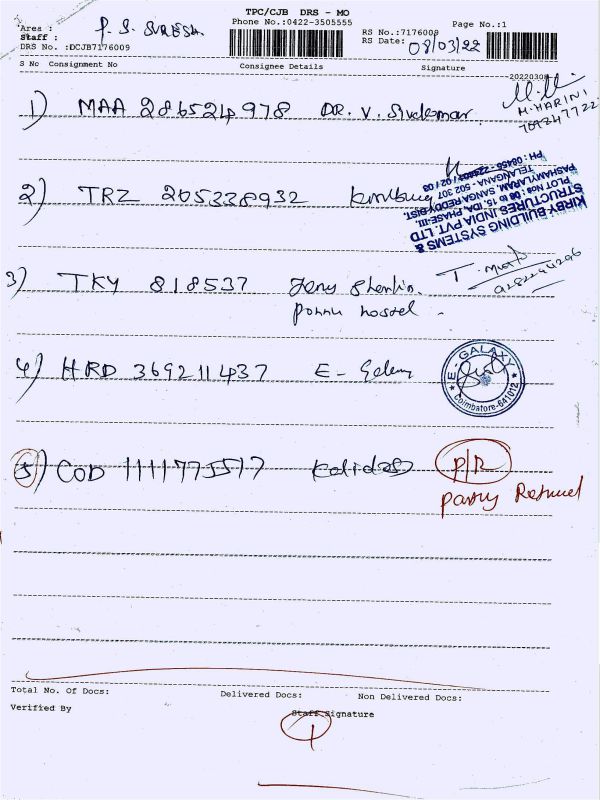 TPC/CJB DRS - MO
Phone No.:0422-3505555
Page No.:1
Area :
Staff : P. S. SURESH
DRS No. :DCJB7176009
RS No.:7176009
RS Date: 08/03/22
S No Consignment No Consignee Details Signature
2022030
1) MAA 286524978 DR. V. Sivakumar
M. HARINI
2) TRZ 205338932
KIRBY BUILDING SYSTEMS &
STRUCTURES INDIA PVT. LTD
PLOT Nos 8, 15, IDA, PHASE-III,
PASHAMYLARAM, SANGA REDDY DIST.
TELANGANA - 502 307
3) TKY 818537
Ponnu hostel
4) HRD 369211437 E-
E. GALAXY
Coimbatore-641012
5) COD 1111775517 Kalidas P/R
Party Refused
Total No. Of Docs: Delivered Docs: Non Delivered Docs:
Verified By Staff Signature